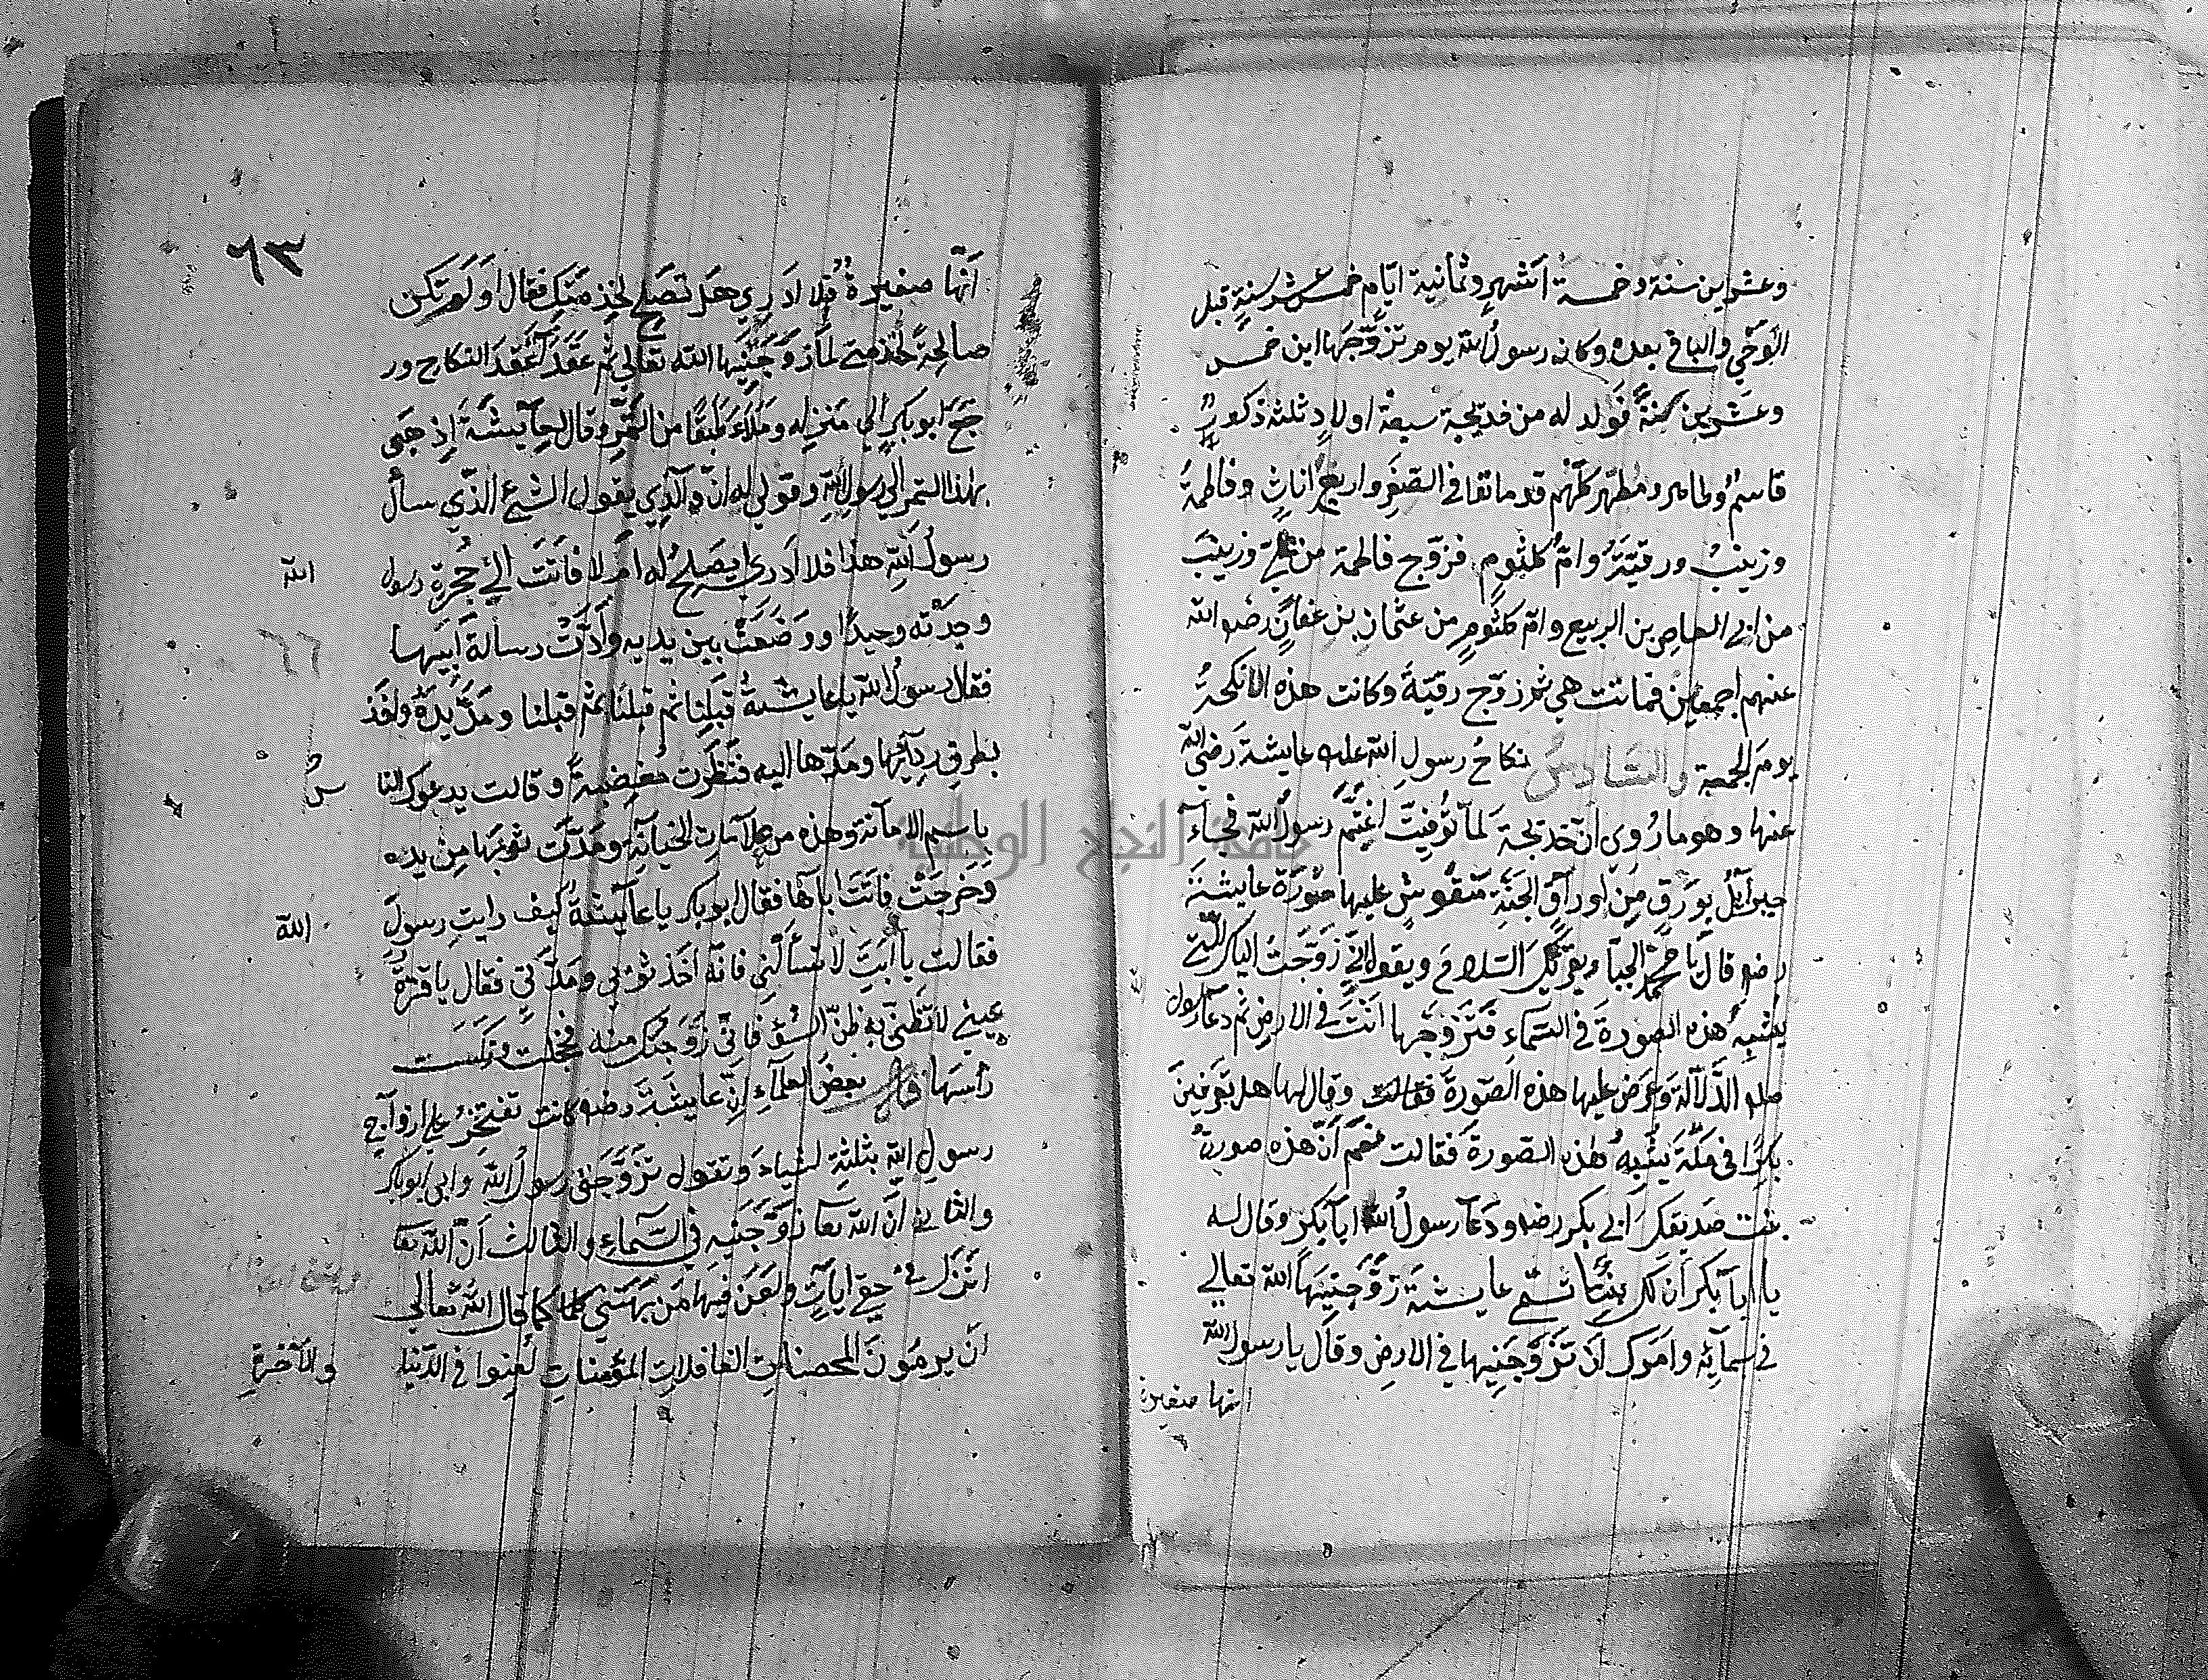 وعشرين سنة وخمسة اشهر وثمانية ايّام خمس عشر سنة قبل
الوحي والباقي بعده وكان رسول الله يوم تزوّجها ابن خمس
وعشرين سنة فولد له من خديجة سبعة اولاد ثلثة ذكور
قاسم وطاهر ومطهر كلّهم قد ماتوا في الصغر واربع اناث وفاطمة
وزينب ورقيّة وامّ كلثوم فزوّج فاطمة من علي وزينب
من ابي العاص بن الربيع وامّ كلثوم من عثمان بن عفان رضو الله
عنهم اجمعين فماتت هي ثم زوّج رقيّة وكانت هذه الانكحة
يوم الجمعة والسّادس نكاح رسول الله عليه عايشة رضي الله
عنها وهو ما روي انّ خديجة لما توفيت اغتمّ رسول الله فجاء
جبرآئل بورق من اوراق الجنّة منقوش عليها صورة عايشة
رضو قال يا محمّد الجبّار يقرئك السّلام ويقول انّي زوّجت اليك الّتي
يشبه هذه الصورة في السّماء فتزوّجها انت في الارض ثم دعا رسول
صلو الدّلّالة وعرض عليها هذه الصّورة فقالت وقال لها هل تعرفين
بكرا في مكّة يشبه هذه الصّورة فقالت نعم انّ هذه صورة
بنت صديقك ابي بكر رضو ودعا رسول الله ابا بكر وقال له
يا ابا بكر انّ لك بنتا تسمّى عايشة زوّجنيها الله تعالي
في سمآئه وامرك ان تزوّجنيها في الارض وقال يا رسول الله
انها صغيرة
٦٣
انّها صغيرة فلا ادري هل تصلح لخدمتك فقال او لم تكن
صالحة لخدمتي لما زوّجنيها الله تعالي ثم عقد عقد النكاح ور
جع ابو بكر الي منزله وملأ طبقا من التّمر وقال لعآيشة اذهبي
بهذا التمر الي رسول الله وقولي له انّ والدي يقول الشئ الذّي سأل
رسول الله هذا فلا ادري ايصلح له ام لا فاتت الي حجرة رسول الله
وجدته وحيدًا ووضعت بين يديه وادّت رسالة ابيها
فقال رسول الله يا عايشة قبلنا ثم قبلنا ثم قبلنا ومدّ يده واخذ
بطرفي ردآئها ومدّها اليه فنظرت مغضبة وقالت يدعوك النا س
باسم الامانة وهذه من علامات الخيانة ومدّت ثوبها من يده
وخرجت فاتت اباها فقال ابو بكر يا عآيشة كيف رايت رسول الله
فقالت يا ابت لا تسألني فانّه اخذ ثوبي ومدّني فقال يا قرّة
عيني لا تظنّي به ظنّ السّوء فانّي زوّجتك منه فخجلت ونكست
رأسها قال بعض العلمآء انّ عايشة رضو كانت تفتخر علي ازواج
رسول الله بثلثة اشياء وتقول تزوّجني رسول الله وابي ابو بكر
والثاني انّ الله تعا زوّجنيه في السّماء والثالث انّ الله تعا
انزل في حقي ايات ولعن فيها من بهتني كما قال الله تعالي
انّ يرمون المحصنات الغافلات المؤمنات لعنوا في الدّنيا والآخرة
جامعة النجاح الوطنية